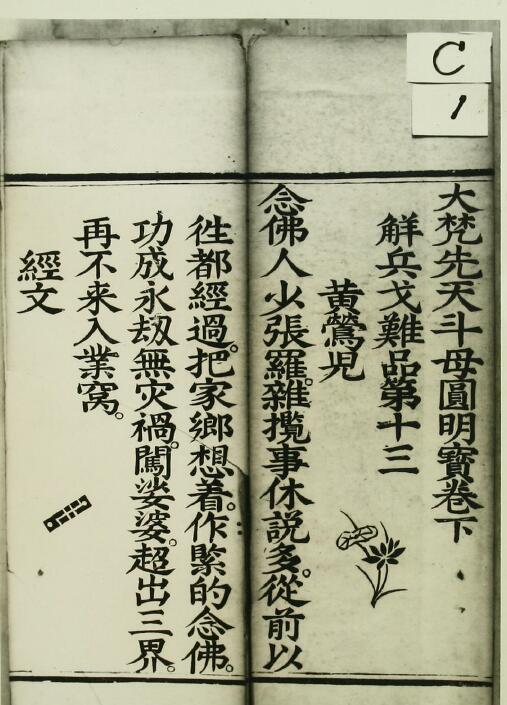 C
1
大梵先天斗母圓明寶卷下
觧兵戈難品第十三
黄鶯児
念佛人少張羅。雜攬事休説多。從前以
徃都經過。把家鄉想着。作緊的念佛。
功成永劫無灾禍。闖娑婆。超出三界。
再不来入業窩。
經文